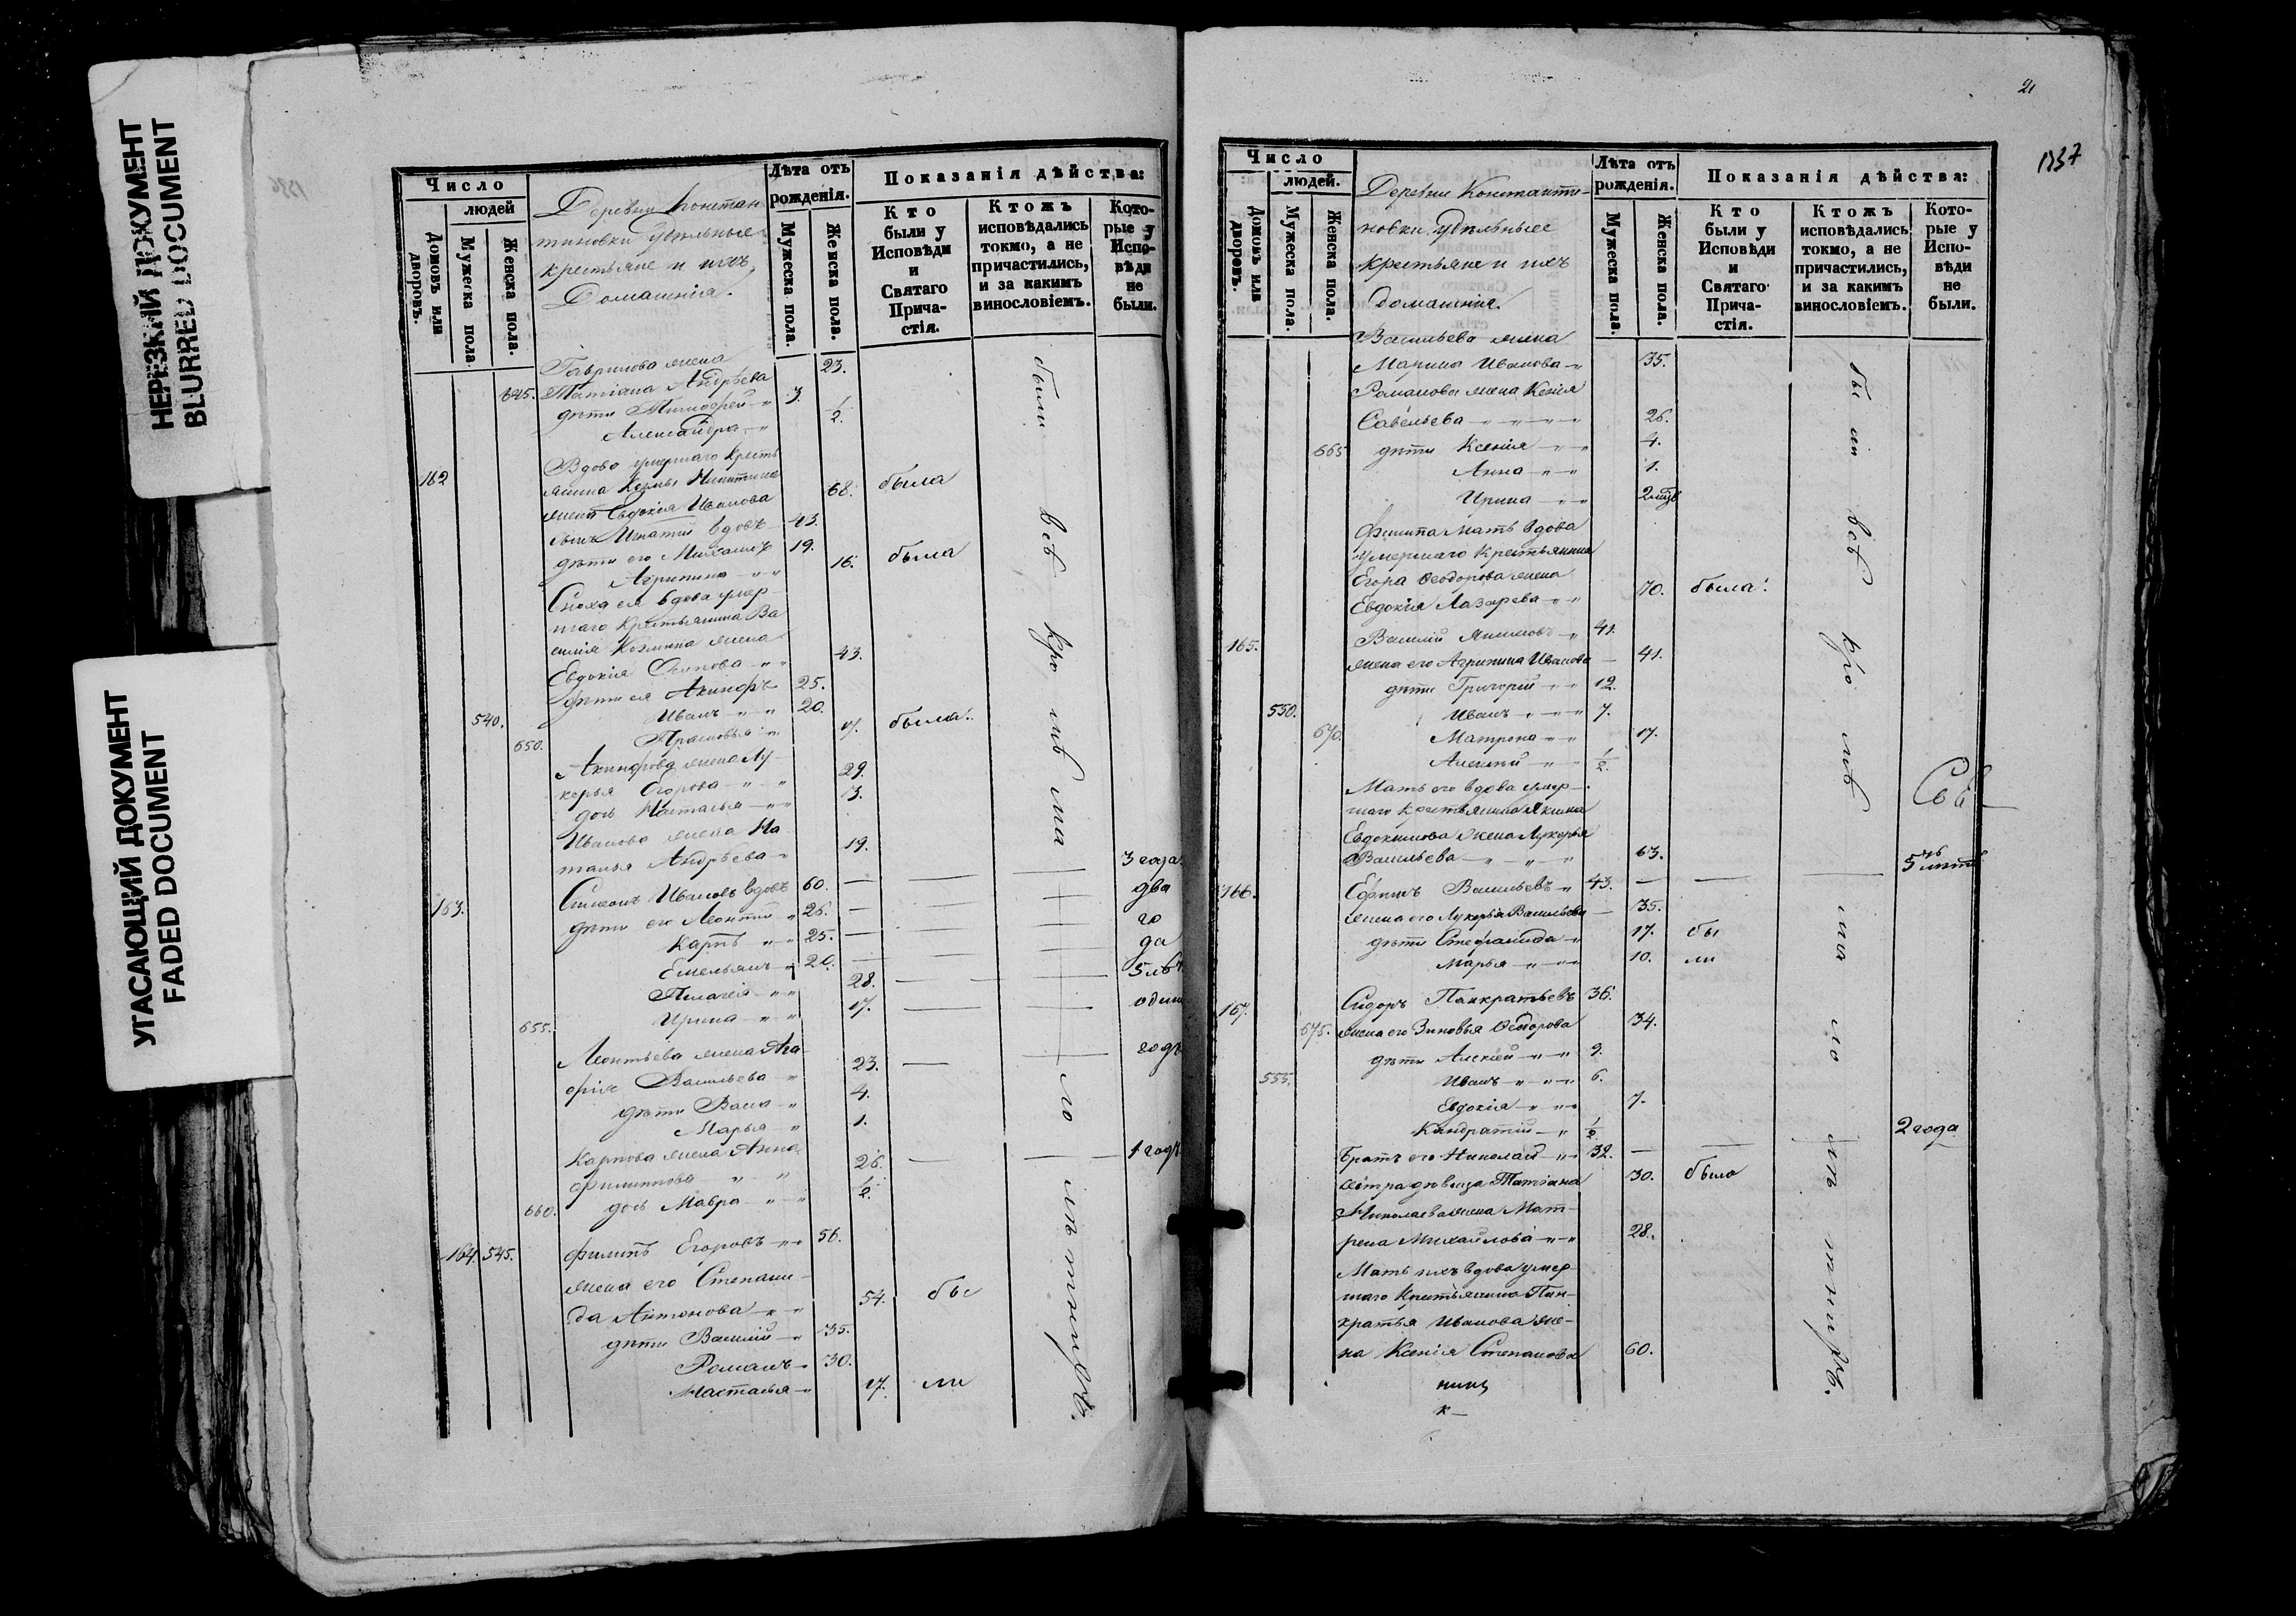 НЕРЕЗКИЙ ДОКУМЕНТ
BLURRED DOCUMENT
УГАСАЮЩИЙ ДОКУМЕНТ
FADED DOCUMENT
Число
людей
Домовъ или дворовъ.
Мужеска пола.
Женска пола.
Деревни Констан
тиновки удѣльные
крестьяне и ихъ
Домашнія.
Лѣта отъ рожденія.
Мужеска пола.
Женска пола.
Показанія дѣйства:
Кто были у Исповѣди и Святаго Прича-стія.
Ктожъ исповѣдались токмо, а не причастились, и за какимъ винословіемъ.
Кото-рые у Испо-вѣди не были.
Гаврилова жена 23.
645. Татіана Андрѣева
дѣти Тимофей 3.
Александра 1/2
Вдова умершаго крестья
182 янина Козмы Никитина
жена Евдокія Иванова 68. была
сынъ Игнатій вдовъ 43.
дѣти его Михаилъ 19.
Агрипина 16. была
Сноха ея вдова умер-
шаго крестьянина Ва
силія Козмина жена
Евдокія Осипова 43.
дѣти ея Акинфъ 25.
540. Иванъ 20.
650. Прасковья 17. была.
Акинфова жена Лу-
керья Егорова 29.
дочь Настасья 3.
Иванова жена На
талья Андрѣева 19.
3 года
163. Симеонъ Ивановъ вдовъ 60. два
дѣти его Леонтій 26. го
Карпъ 25. да
Емельянъ 20. 5 лѣ
Пелагія 28.
655. Ирина 17. одинъ
Леонтьева жена Ага- годъ
фія Васильева 23.
дѣти Васса 4.
Марья 1.
Карпова жена Анна 26. 1 годъ
Филиппова
660. дочь Мавра 1/2
164. 545. Филипъ Егоровъ 56.
жена его Степани-
да Антонова 54. бы
дѣти Василій 35.
Романъ 30.
Настасья 17. ли
были всѣ кро мѣ ма ло лѣтнихъ.
21
1337
Число
людей.
Домовъ или дворовъ.
Мужеска пола.
Женска пола.
Деревни Константи-
новки Удѣльные
крестьяне и ихъ
домашнія.
Лѣта отъ рожденія.
Мужеска пола.
Женска пола.
Показанія дѣйства:
Кто были у Исповѣди и Святаго Прича-стія.
Ктожъ исповѣдались токмо, а не причастились, и за какимъ винословіемъ.
Кото-рые у Испо-вѣди не были.
Васильева жена
Марина Иванова 35.
Романова жена Ксенія
Савельева 26.
665. дѣти Ксенія 4.
Анна 1.
Ирина 2 мѣс
Филипа мать вдова
умершаго крестьянина
Егора Феодорова жена
Евдокія Лазарева 70. была.
165. Василій Якимовъ 41.
жена его Агрипина Иванова 41.
дѣти Григорій 12.
550. Иванъ 7.
670. Матрона 17.
Алексѣй 1/2.
Мать его вдова умер-
шаго крестьянина Якима
Евдокимова жена Лукерья
Васильева 63. 5 лѣтъ
166. Ефимъ Васильевъ 43.
жена его Лукерья Васильева 35.
дѣти Стефанида 17. бы
Марья 10. ли
167. Сидоръ Панкратьевъ 36.
675. жена его Зиновья Федорова 34.
дѣти Алексѣй 9.
555. Иванъ 6.
Евдокія 7.
Кондратій 1/2
Братъ его Николай 32. 2 года
сестра дѣвица Татіана 30. была
Николаева жена Мат-
рена Михайлова 28.
Мать ихъ вдова умер-
шаго крестьянина Пан-
кратья Иванова же-
на Ксенія Степанова 60.
бы ли всѣ кро мѣ ма ло лѣт нихъ.